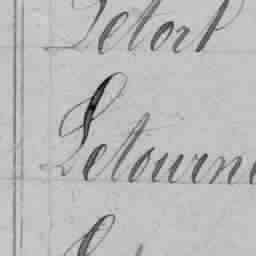 Letort
Letourne